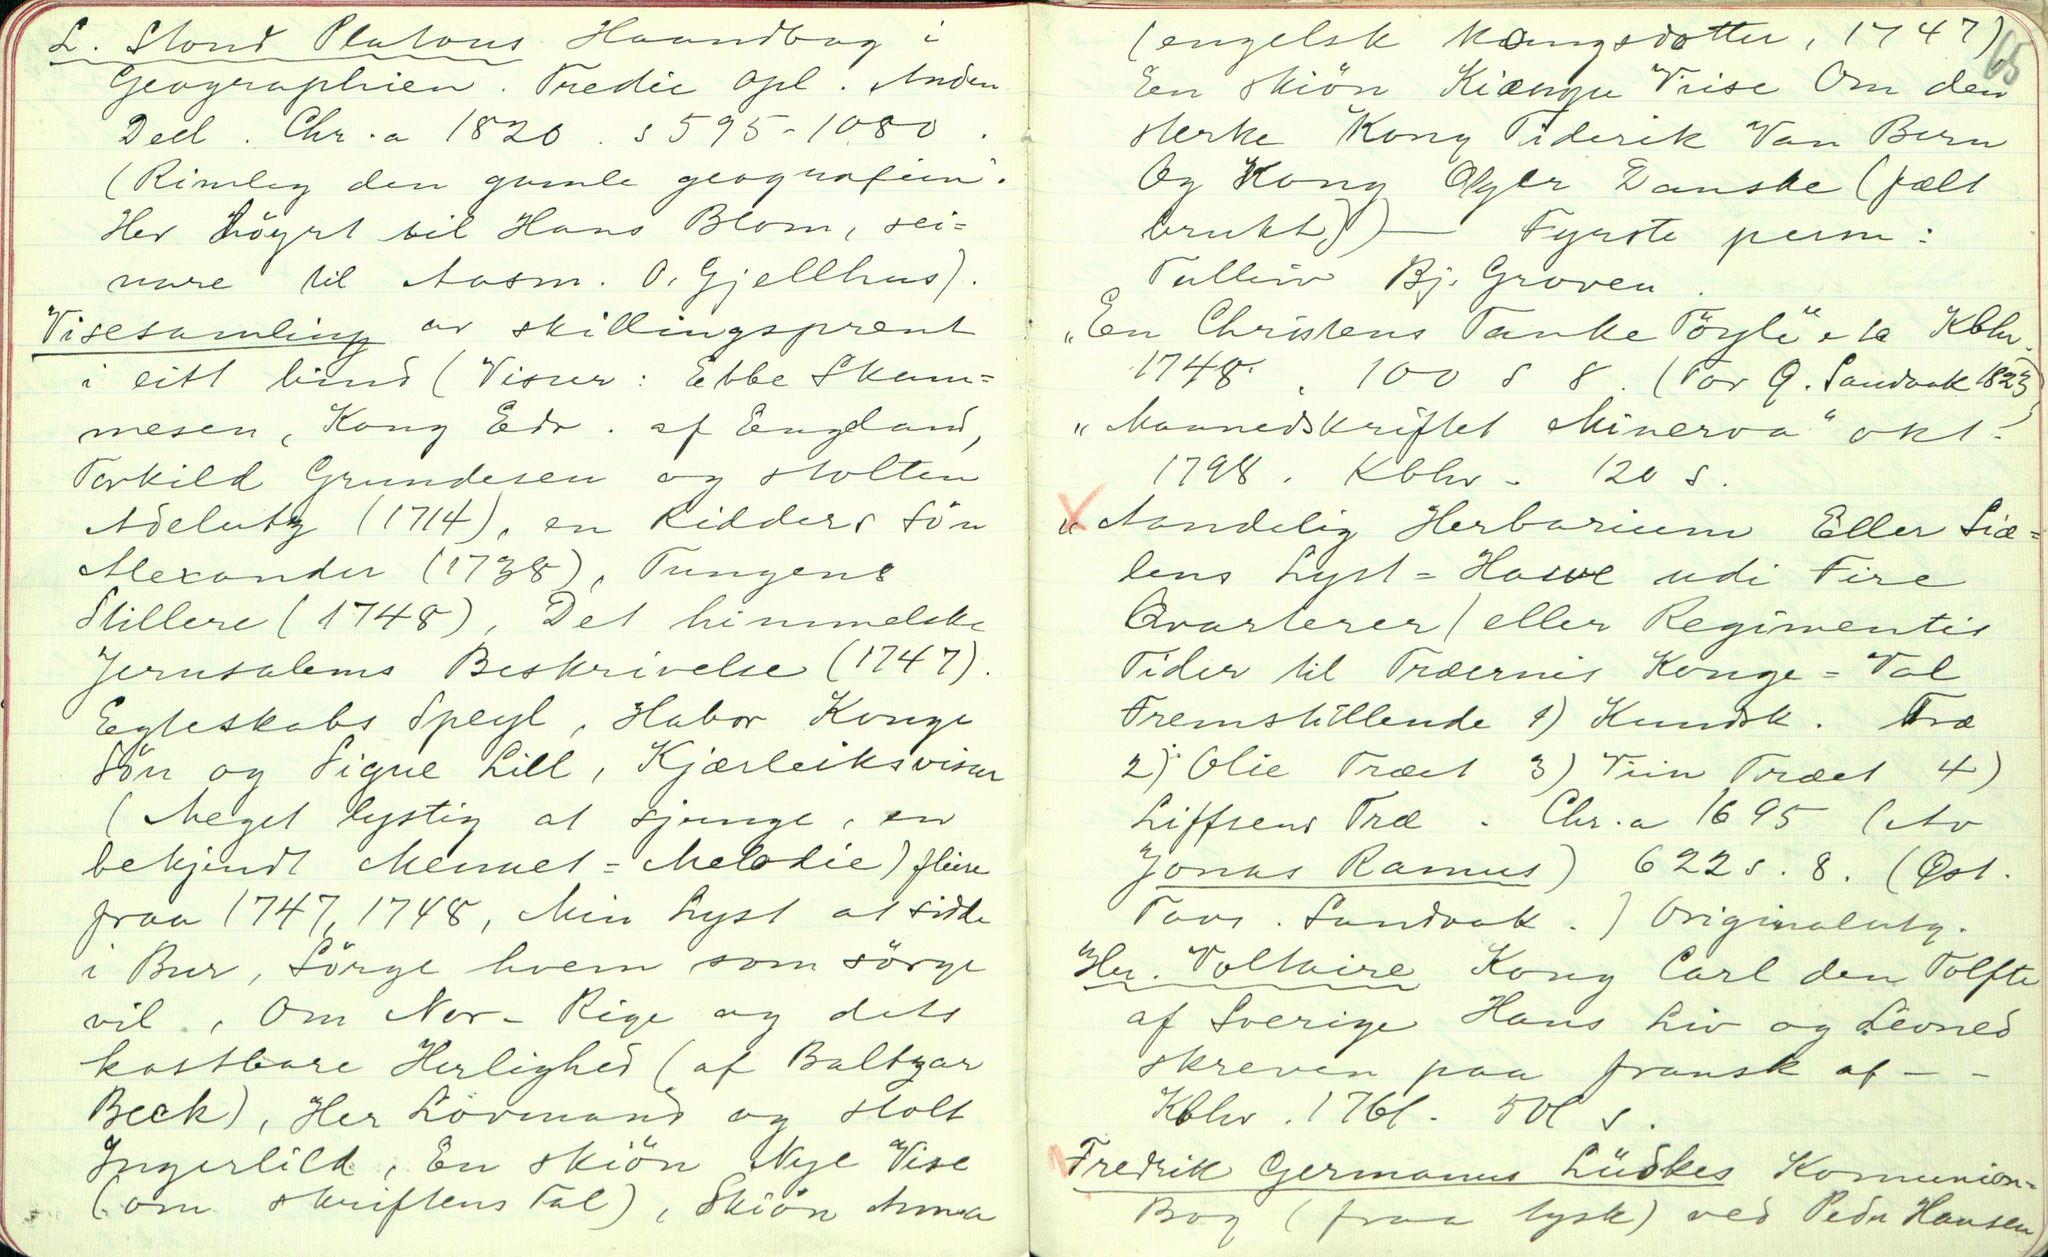 L. Stoud Platous Haandbog i
Geographien. Tredie Opl. Anden
Deel. Chr.a 1820. s 595-1080.
(Rimleg den gamle geografien.
Her höyrt til Hans Blom, sei=
nare til Aasm. O. Gjellhus).
Visesamling av skillingsprent
i eitt bind (Visur: Ebbe Skam=
mesen, Kong Edv. af England,
Torkild Grundesen og stolten
Adelutz (1714), en Ridders Sön
Alexander (1738), Tungens
Stillere (1748), Det himmelske
Jerusalems Beskrivelse (1747).
Egteskabs Speyl, Habor Konge
Sön og Signe Lill, Kjærleiksvisur
(Meget lystig at sjunge, en
bekjendt Menuet=Melodie) fleire
fraa 1747, 1748, Min Lyst at sidde
i Bur, Sörge hvem som sörge
vil, Om Nor-Rige og dets
kostbare Herlighed (af Baltzar
Beck), Her Lövmand og stolt
Ingerlild, En skiön Nye Vise
(om skriftens Tal), Skiön Anna
65
(engelsk Kongsdotter, 1747),
En skiön Kiæmpe Viise Om den
sterke Kong Tiderik Van Bern
Og Kong Olger Danske (fælt
brukt)) — Fyrste perm:
Talleiv Bj. Groven.
„En Christens Tanke Töyle" etc Kbhv.
1748. 100 s 8. (Tor G. Sandvak 1823)
„Maanedskriftet Minerva" okt.
1798. Kbhv. 120 s.
X „Aandelig Herbarium Eller Siæ=
lens Lyst=Hawe udi Fire
Qvarterer / eller Regimentis
Tider til Træernis Konge=Val
Fremstillende 1) Kundsk. Træ
2) Olie Træet 3) Viin Træet 4)
Liffsens Træ. Chr.a 1695 (Av
Jonas Ramus) 622 s. 8. (Øst.
Tovs. Sandvak.) Originalutg.
Hr. Voltaire Kong Carl den Tolfte
af Sverige Hans Liv og Levned
skreven paa fransk af - -
Kbhv. 1761. 501 s.
Fredrik Germanus Lüdkes Komunion=
Bog (fraa tysk) ved Peder Hansen